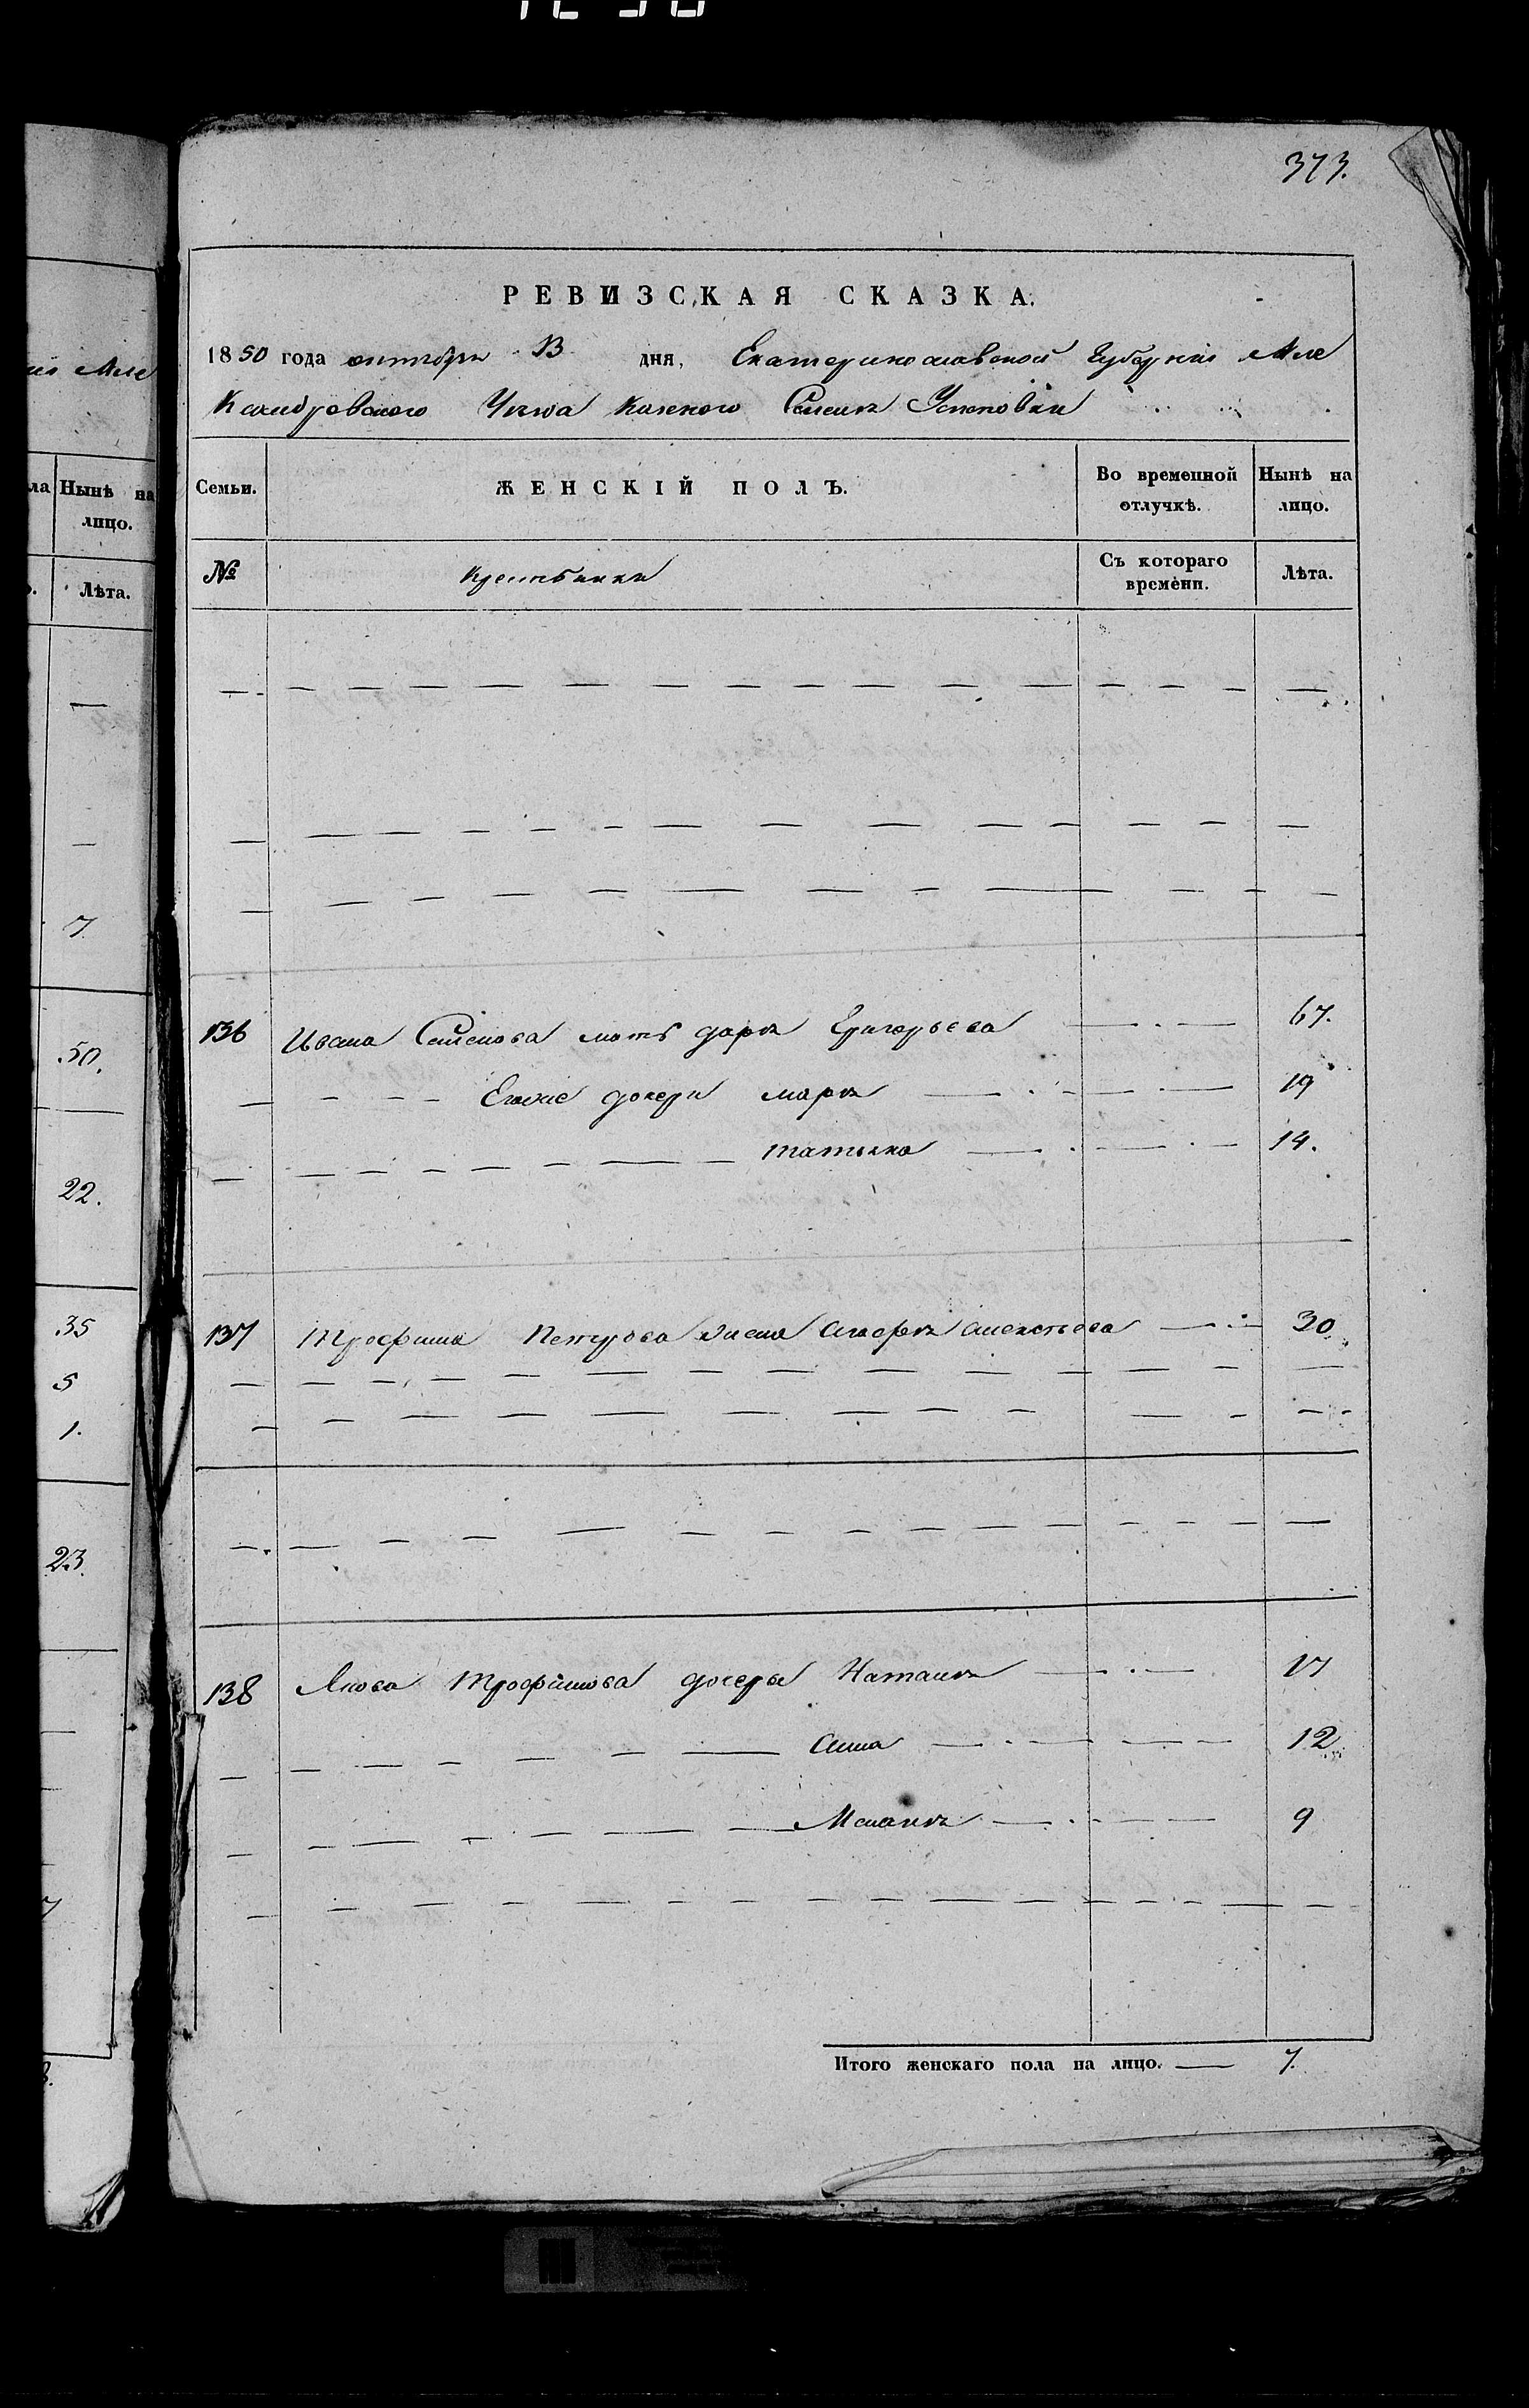 373.
РЕВИЗСКАЯ СКАЗКА.
1850 года октября 13 дня, Екатеринославской Губерніи Але
Ксандровского Уезда Казеного Селенія Успеновки
Семьи. ЖЕНСКІЙ ПОЛЪ. Во временной отлучкѣ. Нынѣ на лицо.
№ Крестьянки Съ котораго времени. Лѣта.
136 Ивана Семенова мать дарья Григорьева 67.
Его дочери марья 19
татьяна 14.
137 Трофима Петрова жена Агафья Алексѣева 30
138 Якова Трофимова дочеры Наталья 17
Анна 12
Меланья 9
Итого женскаго пола на лицо. 7.
Нынѣ на
лицо.
Лѣта.
7.
50.
22.
35
5
1.
23.